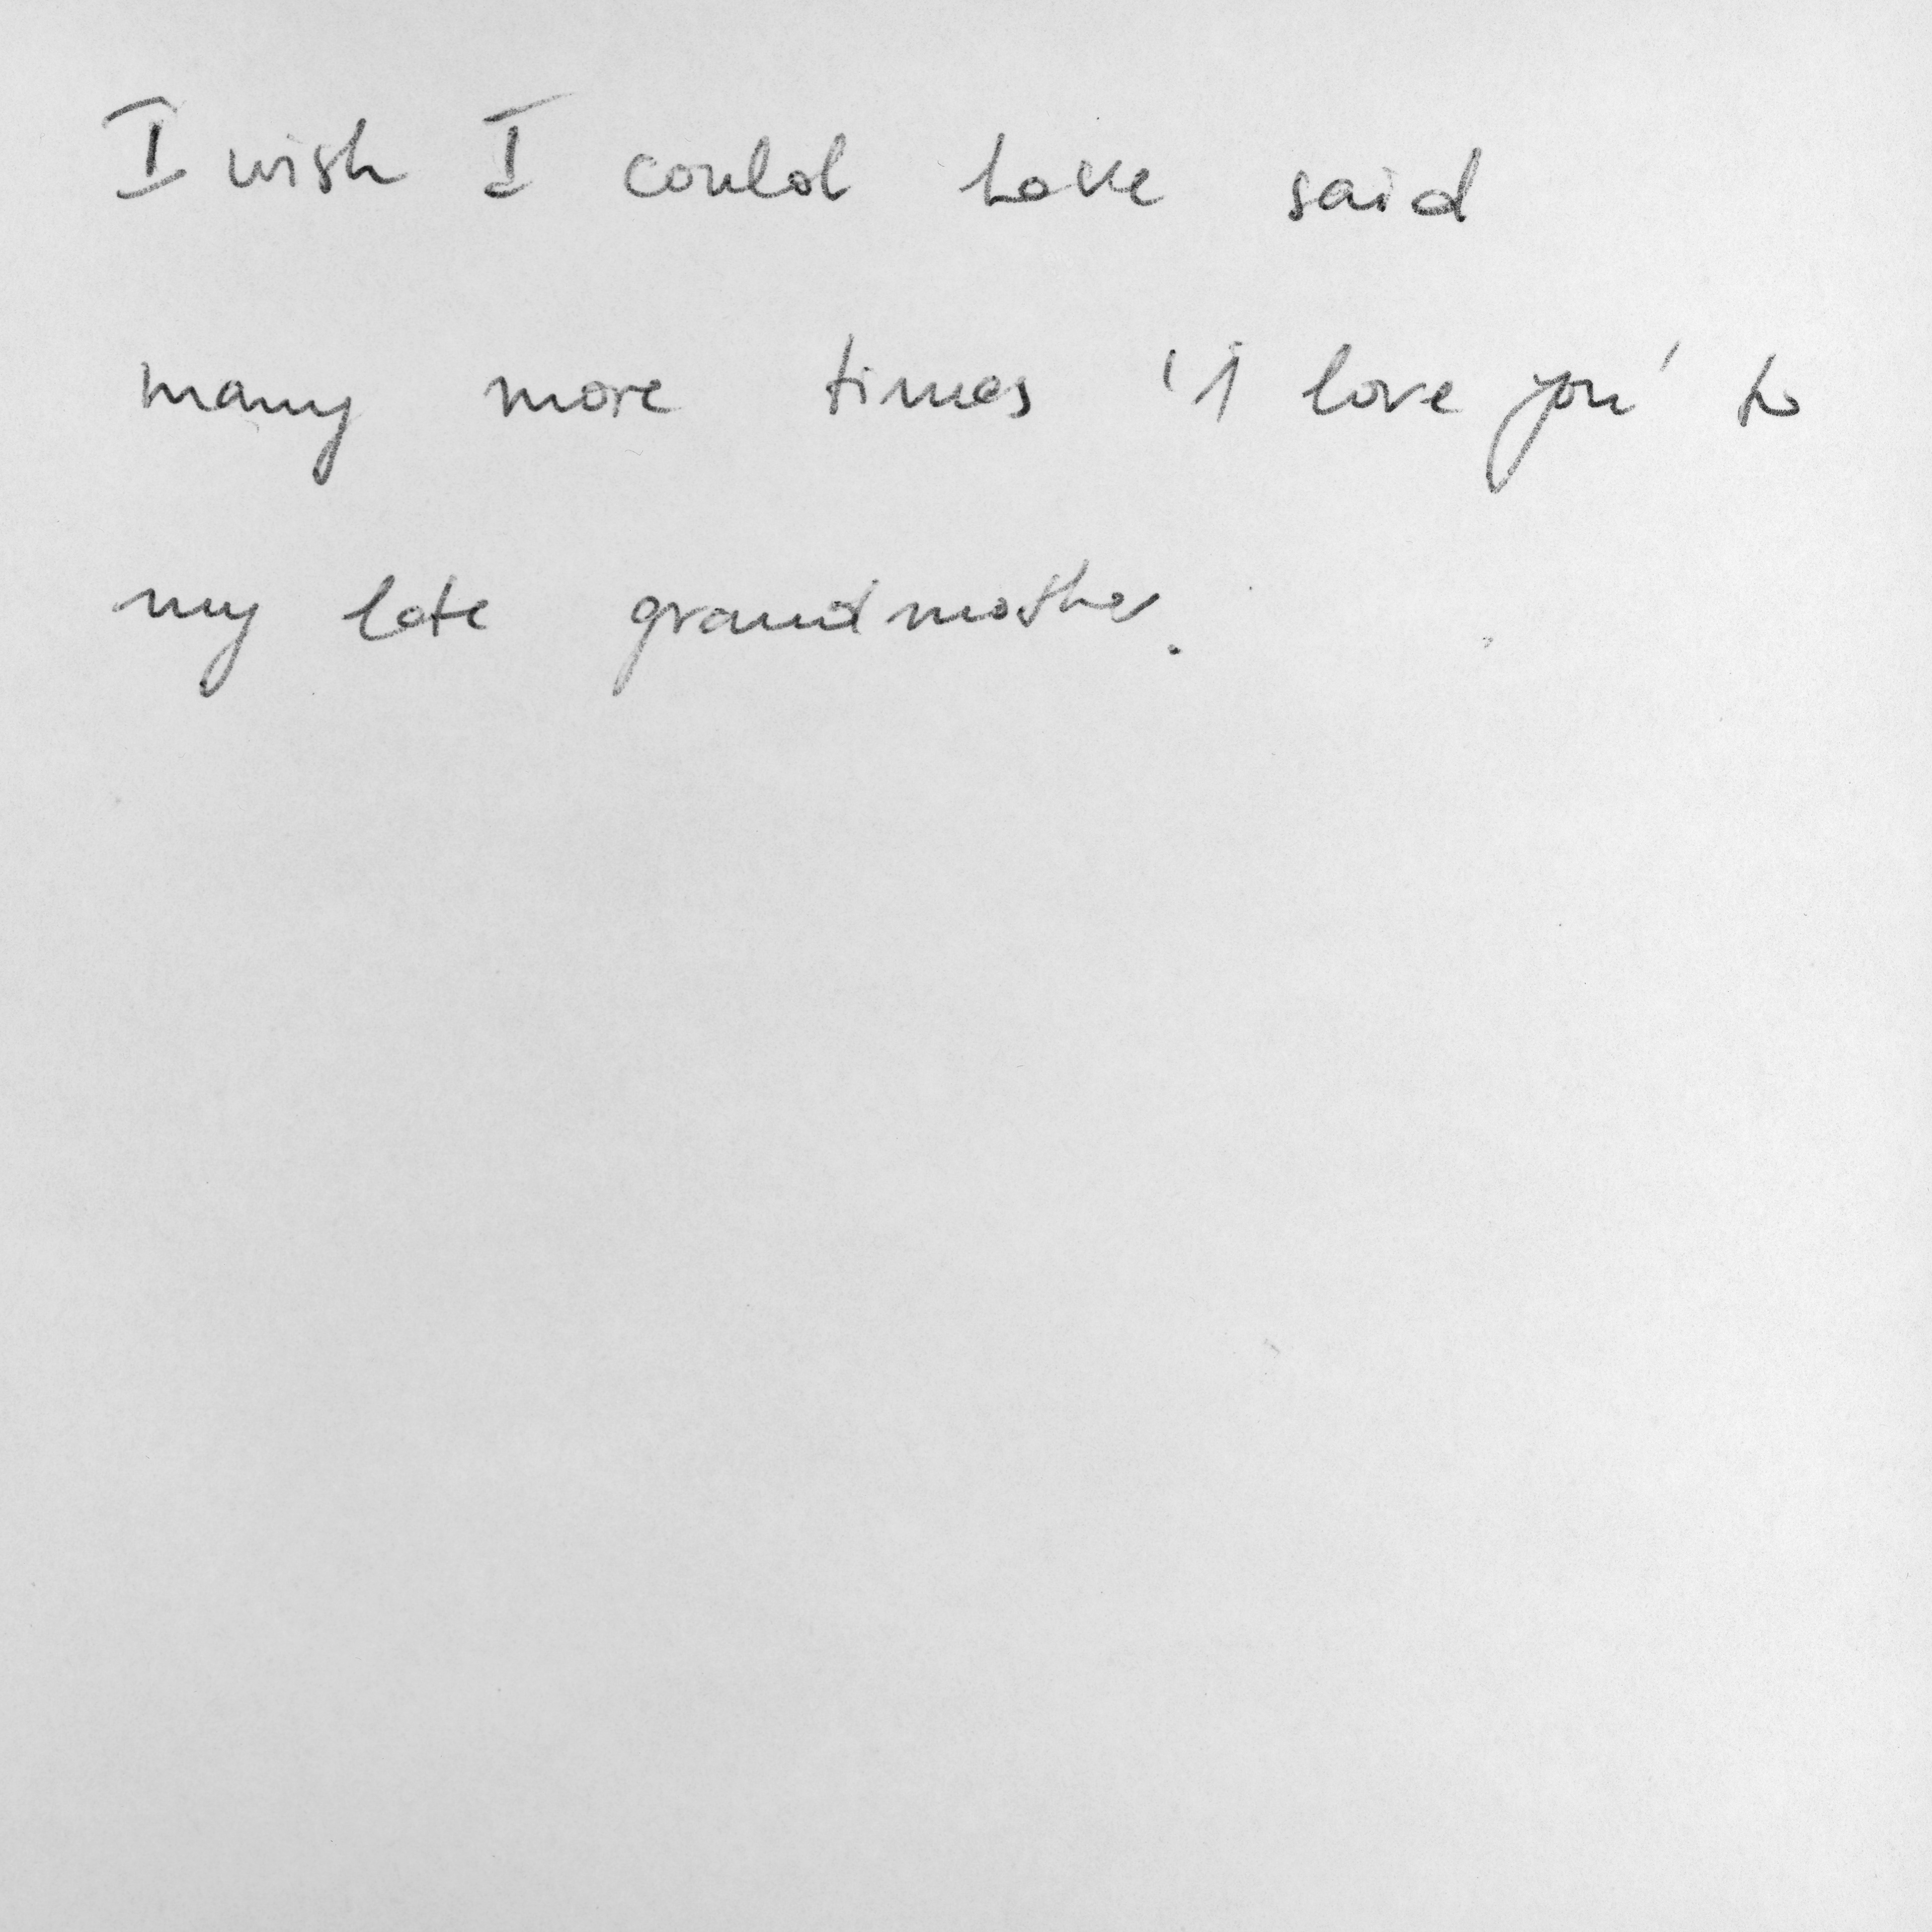 I wish I could have said
many more times 'I love you' to
my late grandmother.